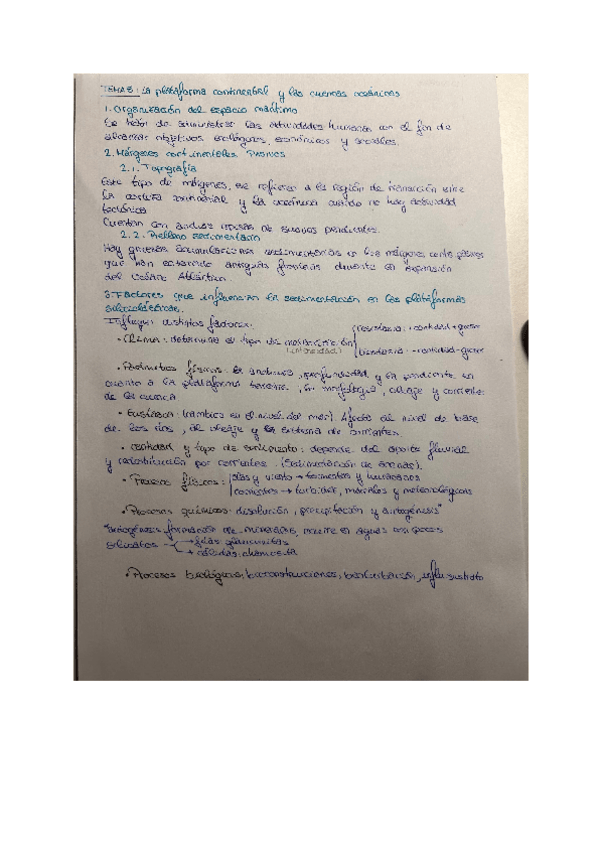 TEMA 8: La plataforma continental y las cuencas oceánicas
1. Organización del espacio marítimo
Se trata de administrar las actividades humanas con el fin de
alcanzar objetivos ecológicos, económicos y sociales.
2. Márgenes continentales Pasivos
2.1. Topografía
Este tipo de márgenes, se refiere a la región de transición entre
la corteza continental y la oceánica cuando no hay actividad
tectónica.
Cuentan con anchas de suaves pendientes.
2.2. Relleno sedimentario
Hay gruesas acumulaciones sedimentarias en los márgenes
que han antiguas durante la expansión
del Océano Atlántico.
3. Factores que influencian la sedimentación en las plataformas
siliciclásticas.
Influyen distintos factores:
• Clima: determina el tipo de meteorización
(intensidad)
• Parámetros físicos: la anchura, profundidad y la pendiente en
cuanto a la plataforma , la morfología, oleaje y corrientes
de la cuenca
• Eustasia: (cambios en el nivel del mar) Afecta al nivel de base
de los ríos, al oleaje y al sistema de corrientes.
• cantidad y tipo de sedimento: depende del aporte fluvial
y redistribución por corrientes. (Sedimentación de )
• Procesos físicos: olas y viento → tormentas y huracanes
corrientes → turbidez, mareales y meteorológicas
• Procesos químicos: disolución, precipitación y autogénesis*
*autogénesis: formación de minerales, ocurre en aguas con pocos
silicatos → frías: glauconitas
→ cálidas: chamosita
• Procesos biológicos: bioconstrucciones, bioturbación, sustrato